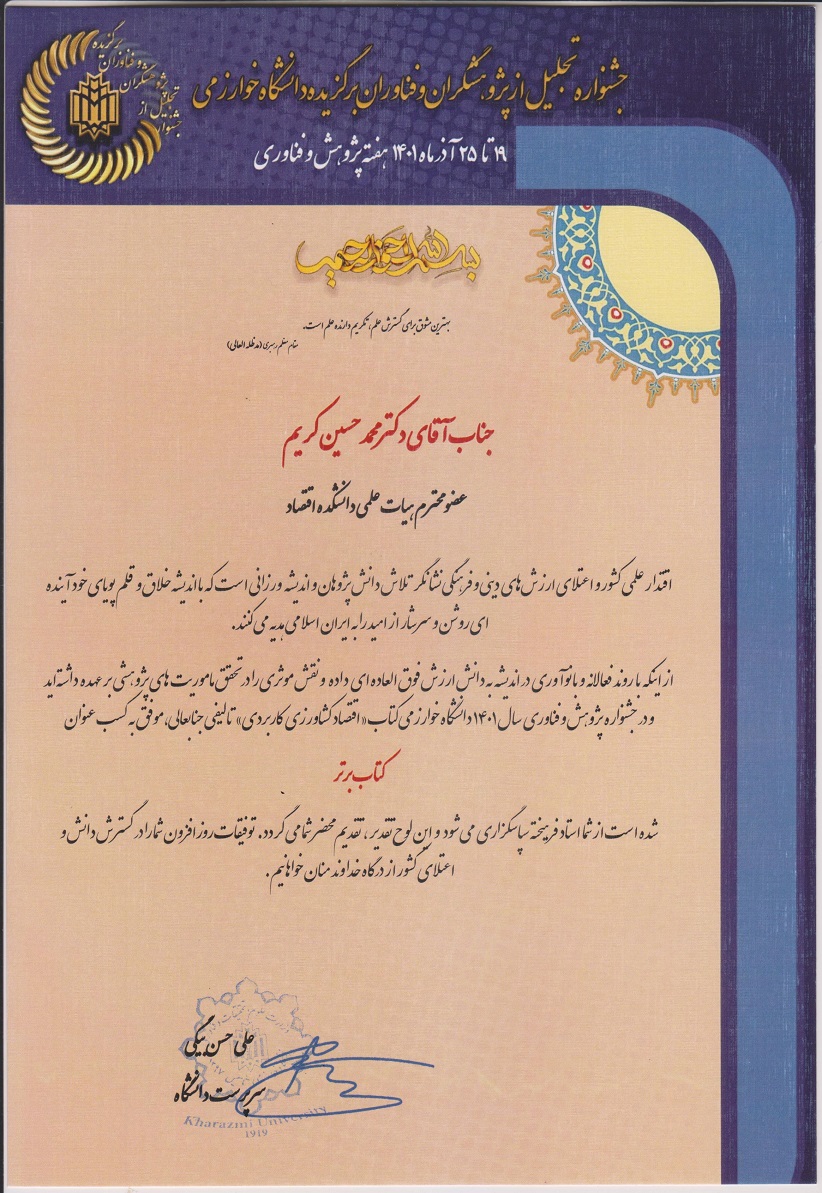 جشنواره تجلیل از پژوهشگران و فناوران برگزیده دانشگاه خوارزمی
۱۹ تا ۲۵ آذر ماه ۱۴۰۱ هفته پژوهش و فناوری
برگزیده
و فناوران
پژوهشگران
تجلیل از
جشنواره
بسم الله الرحمن الرحیم
بهترین مشوق برای گسترش علم، تکریم دارنده علم است.
مقام معظم رهبری (مدظله العالی)
جناب آقای دکتر محمد حسین کریم
عضو محترم هیات علمی دانشکده اقتصاد
اقتدار علمی کشور و اعتلای ارزش های دینی و فرهنگی نشانگر تلاش دانش پژوهان و اندیشه ورزانی است که با اندیشه خلاق و قلم پویای خود آینده
ای روشن و سرشار از امید را به ایران اسلامی هدیه می کنند.
از اینکه با روند فعالانه و با نوآوری در اندیشه به دانش ارزش فوق العاده ای داده و نقش موثری را در تحقق ماموریت های پژوهشی بر عهده داشته اید
و در جشنواره پژوهش و فناوری سال ۱۴۰۱ دانشگاه خوارزمی کتاب «اقتصاد کشاورزی کاربردی» تالیفی جنابعالی، موفق به کسب عنوان
کتاب برتر
شده است از شما استاد فریخته سپاسگزاری می شود و این لوح تقدیر، تقدیم محضر شما می گردد. توفیقات روز افزون شما را در گسترش دانش و
اعتلای کشور از درگاه خداوند منان خواهانیم.
علی حسن بیگی
سرپرست دانشگاه
Kharazmi University
1919